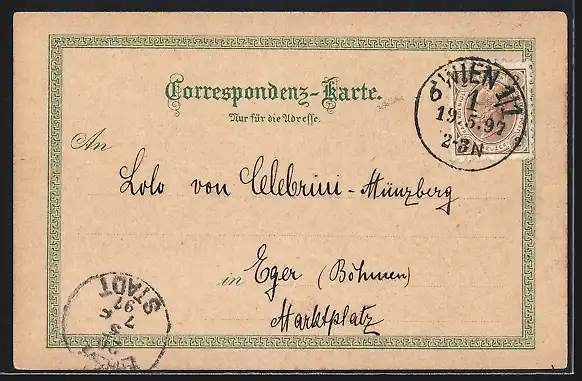 Correspondenz-Karte.
Nur für die Adresse.
WIEN 1/1
1
19.5.97
2-3N
An
Lolo von Celebrini-Münzberg
in Eger (Böhmen)
Marktplatz
STADT
97